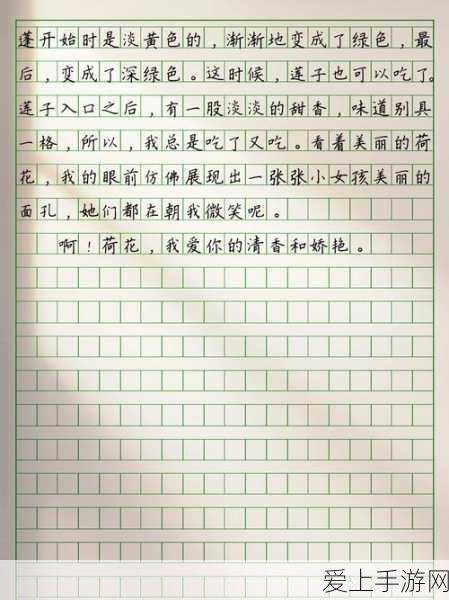 蓬开始时是淡黄色的，渐渐地变成了绿色，最
后，变成了深绿色。这时候，莲子也可以吃了。
莲子入口之后，有一股淡淡的甜香，味道别具
一格，所以，我总是吃了又吃。看着美丽的荷
花，我的眼前仿佛展现出一张张小女孩美丽的
面孔，她们都在朝我微笑呢。
啊！荷花，我爱你的清香和娇艳。
爱上手游网